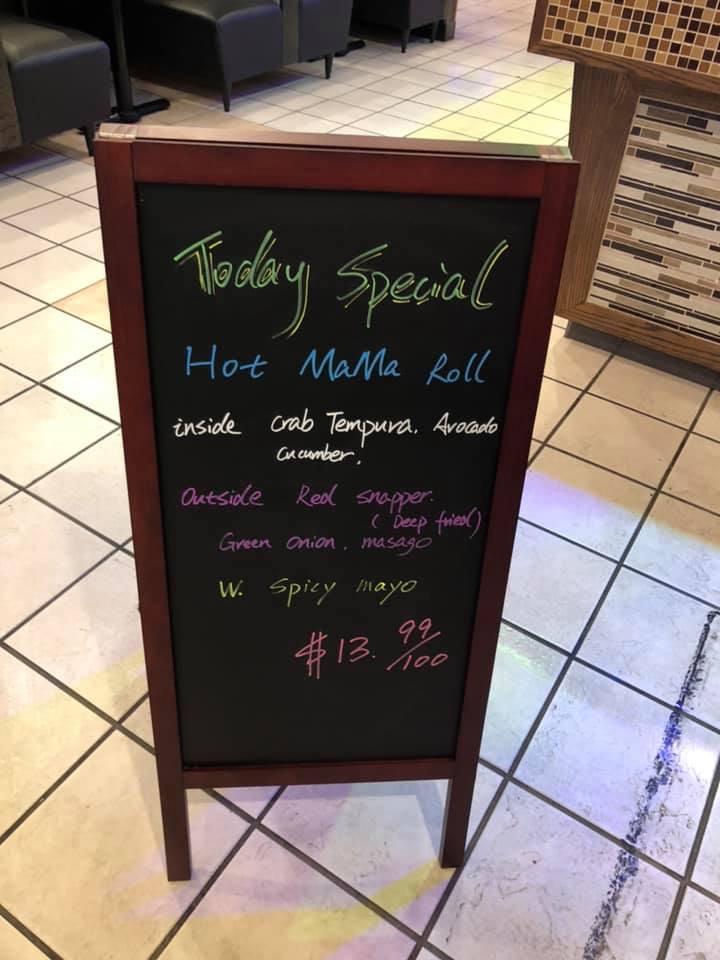 Today Special
Hot MaMa Roll
inside Crab Tempura. Avocado
cucumber.
Outside Red snapper.
( Deep fried)
Green onion. masago
W. Spicy mayo
$13. 99/100